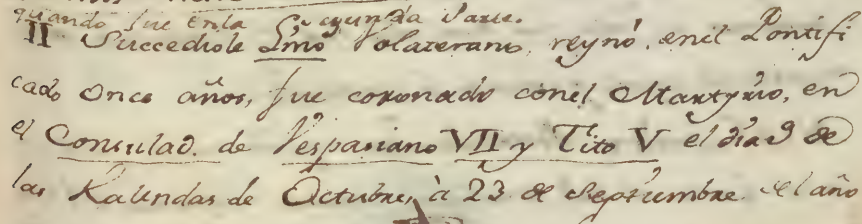 quando fue en la Segunda Parte.
II Succediole Lino Volaterano, reynó, en il Pontifi
cado Once años, fue coronado con el Martyrio, en
el Consulad. de Vespasiano VII y Tito V el dia 9 de
las Kalendas de Octubre, à 23 de Septiembre. del año